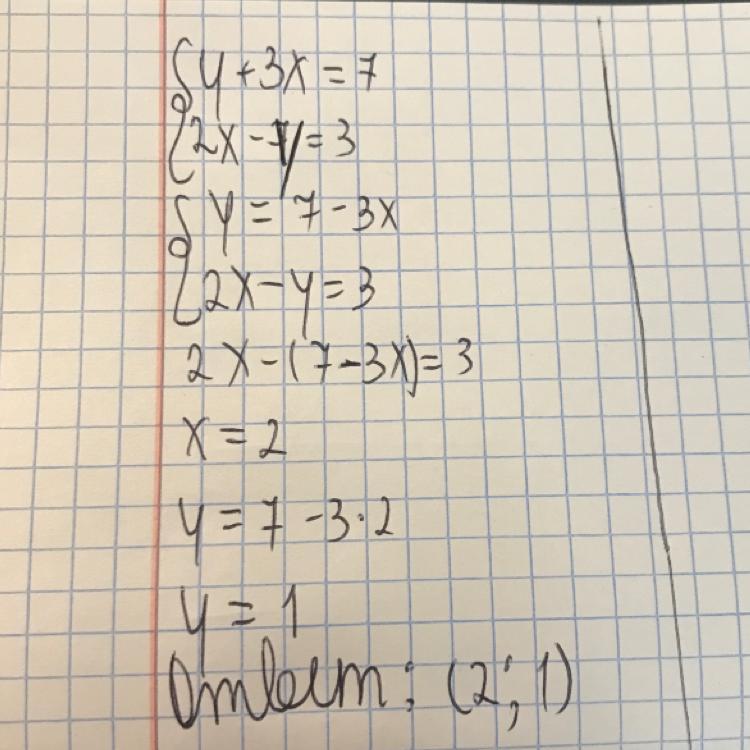 {y + 3x = 7
{2x - y = 3
{y = 7 - 3x
{2x - y = 3
2x - (7 - 3x) = 3
x = 2
y = 7 - 3 · 2
y = 1
Ответ: (2; 1)